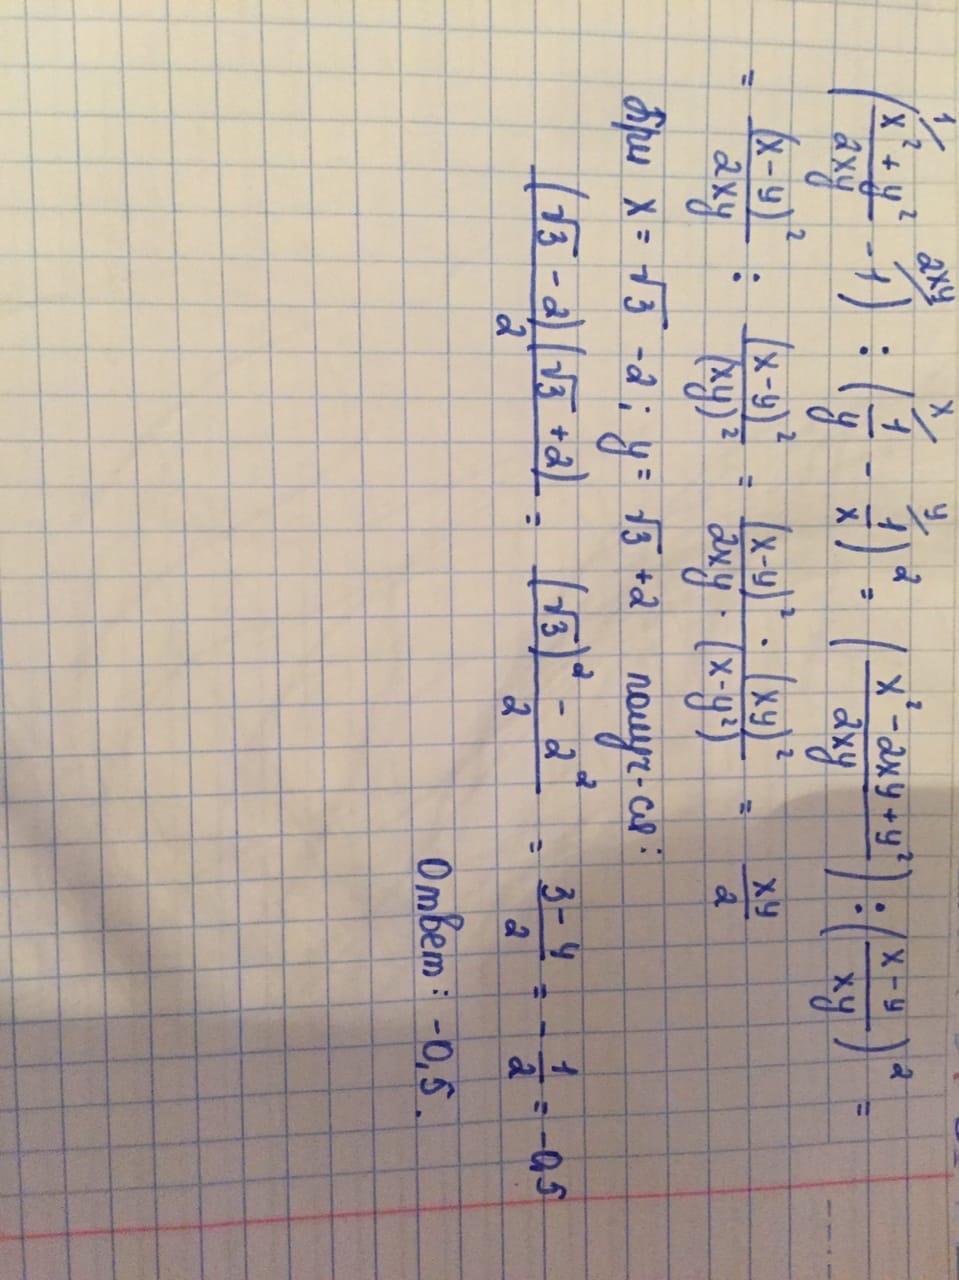 (\frac{x²+y²}{2xy}^{1/} - 1^{2xy/}) : (\frac{1}{y}^{x/} - \frac{1}{x}^{y/})² = (\frac{x²-2xy+y²}{2xy}) : (\frac{x-y}{xy})² =
= \frac{(x-y)²}{2xy} : \frac{(x-y)²}{(xy)²} = \frac{(x-y)² · (xy)²}{2xy · (x-y²)} = \frac{xy}{2}
При x = √3 -2; y = √3 +2 получ-ся:
\frac{(√3 - 2)(√3 + 2)}{2} = \frac{(√3)² - 2²}{2} = \frac{3-4}{2} = -\frac{1}{2} = -0,5
Ответ: -0,5.